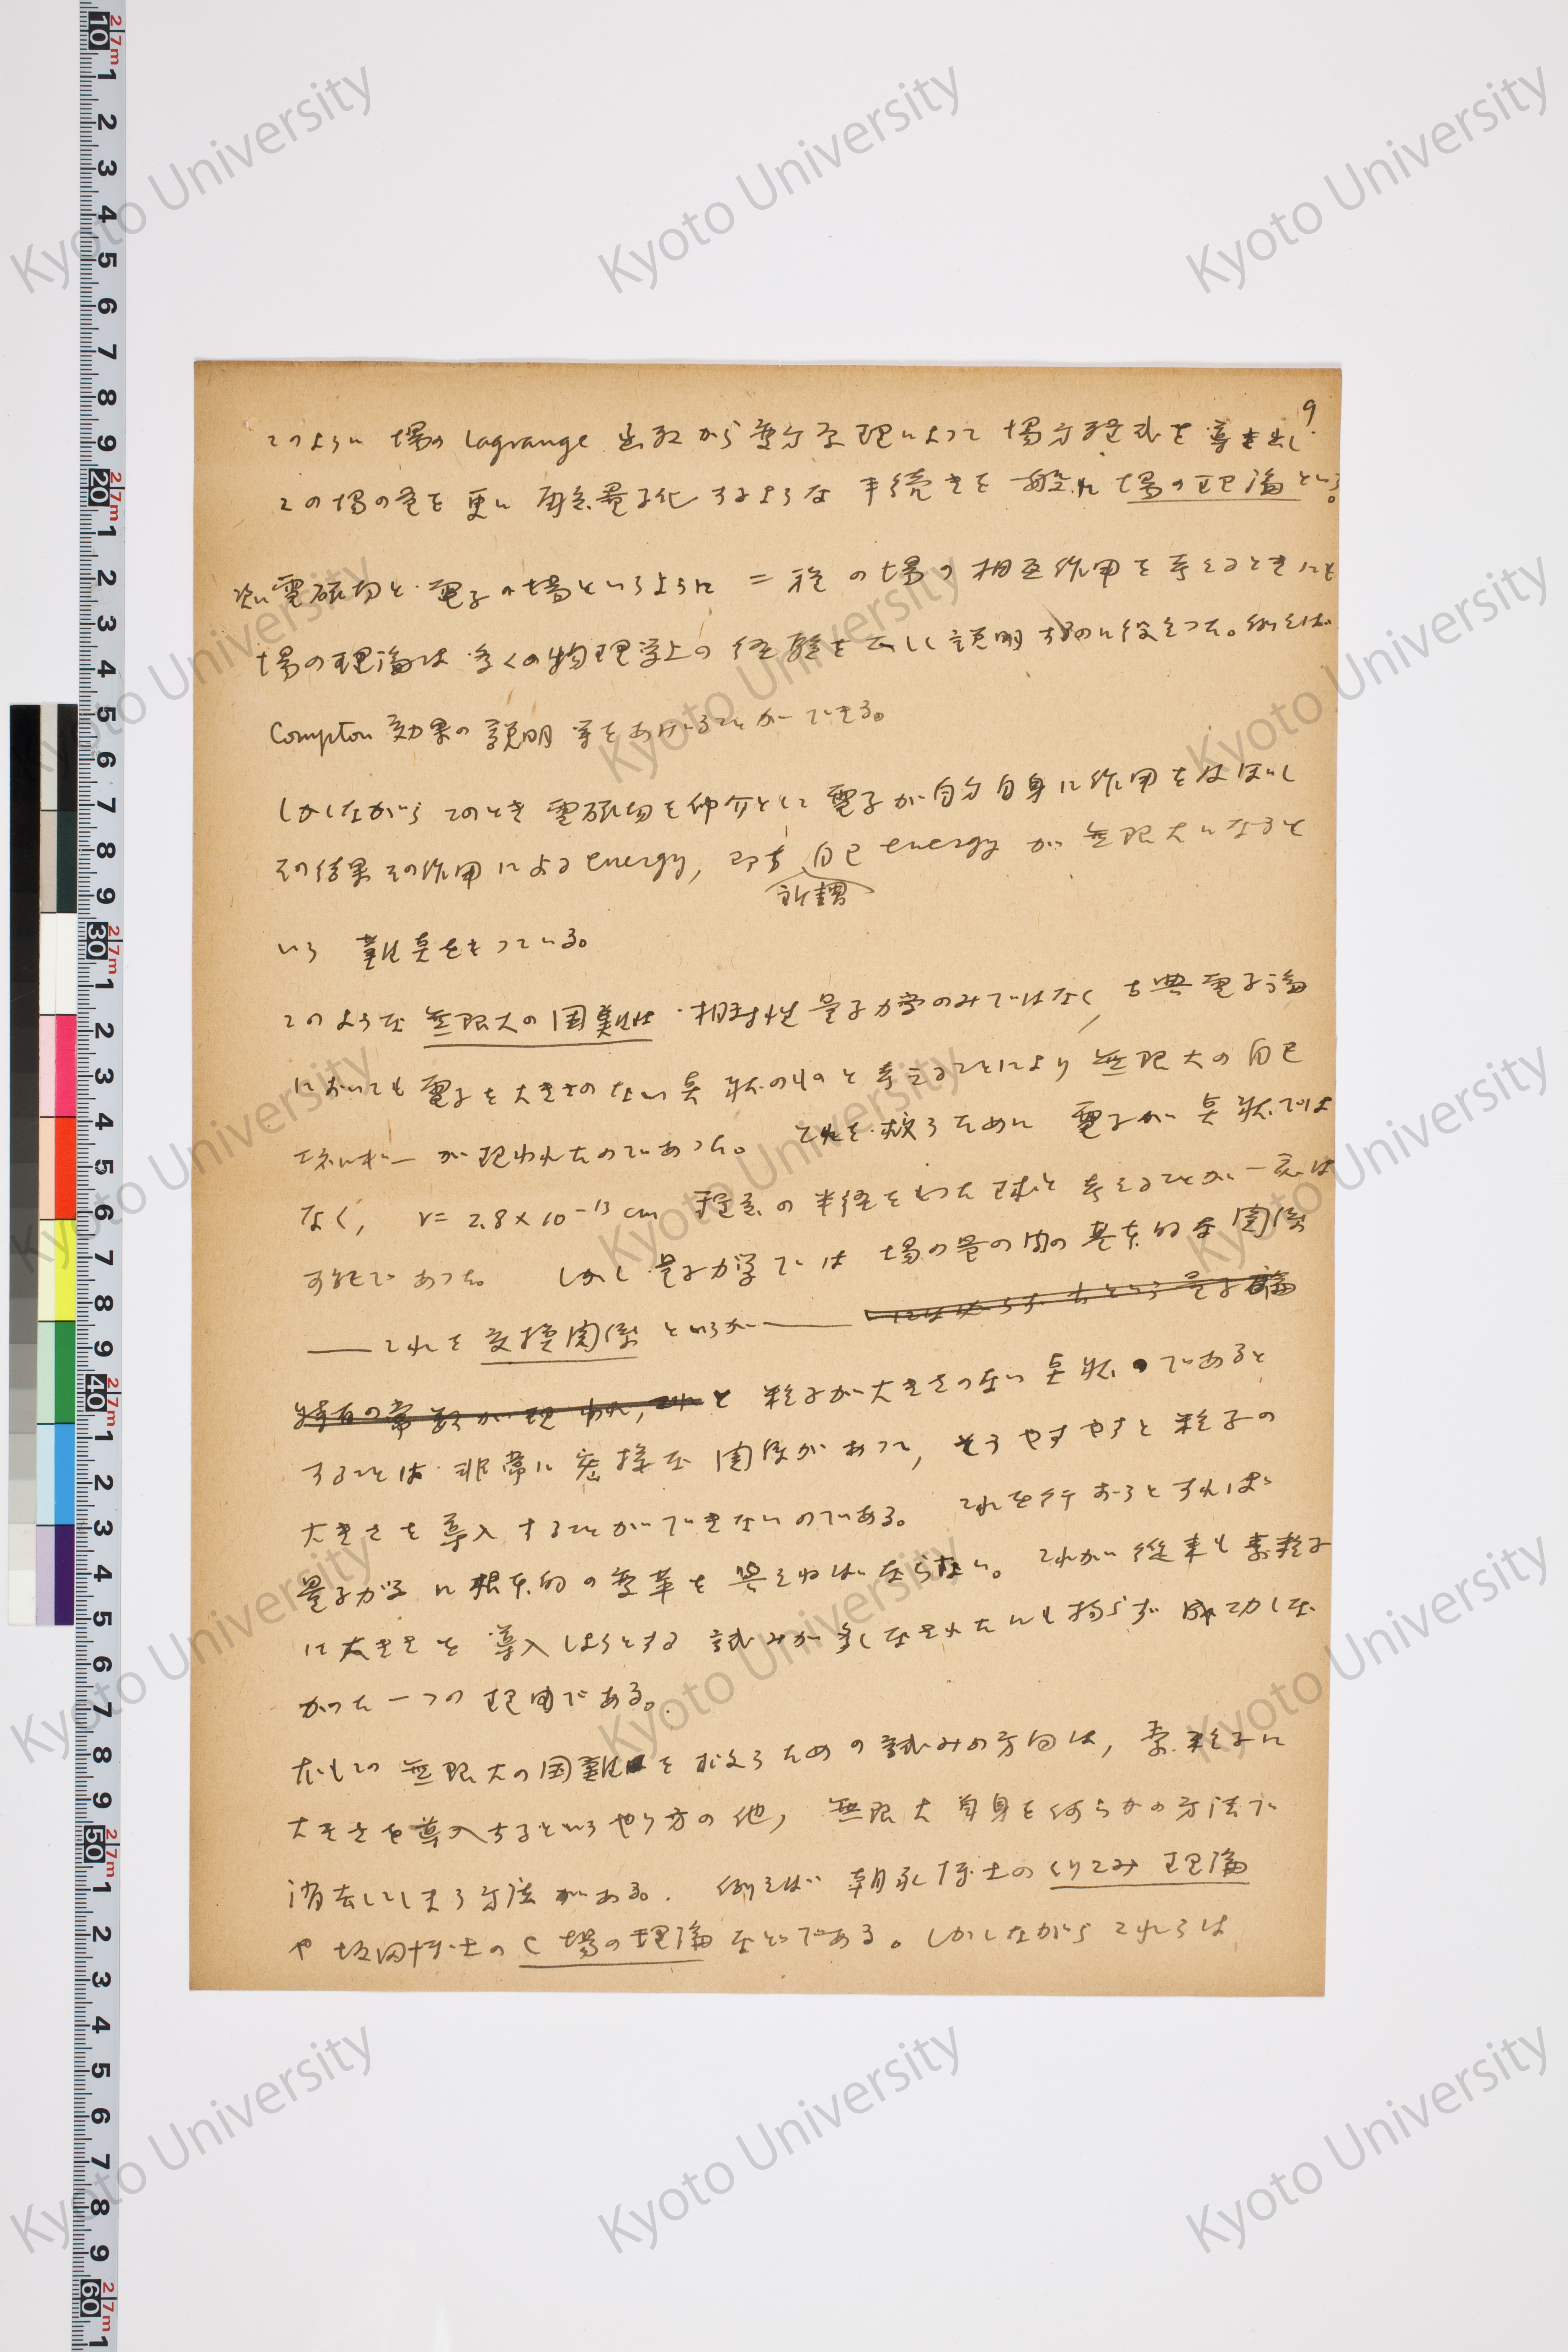 9
このように 場の Lagrange 函数から変分原理によって 場方程式を導き出し
この場の量を 更に 再び量子化 するような 手続きを一般に 場の理論という。
次に電磁場と電子の場というように 二種の場の相互作用を考えるときにも
場の理論は多くの物理学上の経験を正しく説明するのに役立つた。例えば
Compton 効果の説明等をあげることができる。
しかしながら このとき 電磁場を仲介として 電子が自分自身に作用をおよぼし
その結果その作用による energy, 即ち 自己 energy が 無限大になると
所謂
いう 難点をもつている。
このような 無限大の困難は 相対性量子力学のみではなく, 古典電子論
においても電子を大きさのない点状のものと考えることにより 無限大の自己
エネルギーが現われたのであつた。 これを救うために 電子が点状では
なく, r = 2.8 × 10⁻¹³ cm 程度の半径をもつた球と考えることが一応は
可能であつた。 しかし量子力学では 場の量の間の基本的な関係
——これを 交換関係 というが—— には必らず h という量子論
特有の常数が現われ, これと 粒子が大きさのない点状であると
することは 非常に密接な関係があつて, そうやすやすと粒子の
大きさを導入することができないのである。 これを行おうとすれば
量子力学に根本的の変革を与えねばならない。 これが従来も素粒子
に大きさを導入しようとする試みが多くなされたにも拘らず成功しな
かつた一つの理由である。
なおこの 無限大の困難を救うための試みの方向は, 素粒子に
大きさを導入するというやり方の他, 無限大自身を何らかの方法で
消去してしまう方法がある。 例えば 朝永博士のくりこみ理論
や 坂田博士の C 場の理論などである。しかしながらこれらは
Kyoto University